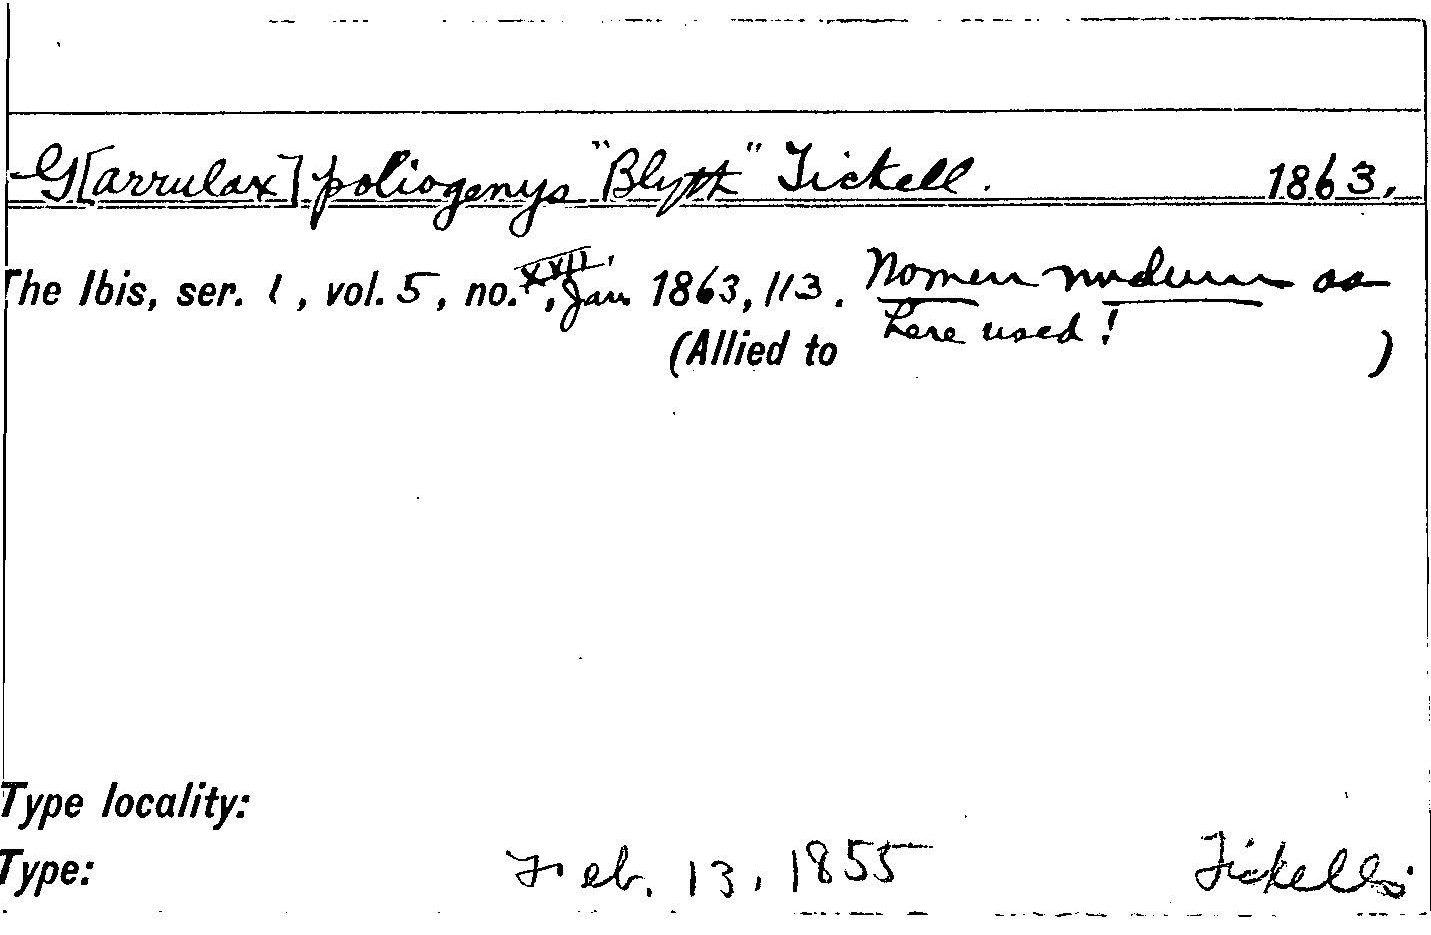 G[arrulax] poliogenys "Blyth" Tickell. 1863.
The Ibis, ser. 1, vol. 5, no. XVII, Jan. 1863, 113. Nomen nudum as
here used!
(Allied to )
Type locality:
Type: Feb. 13, 1855 Tickell